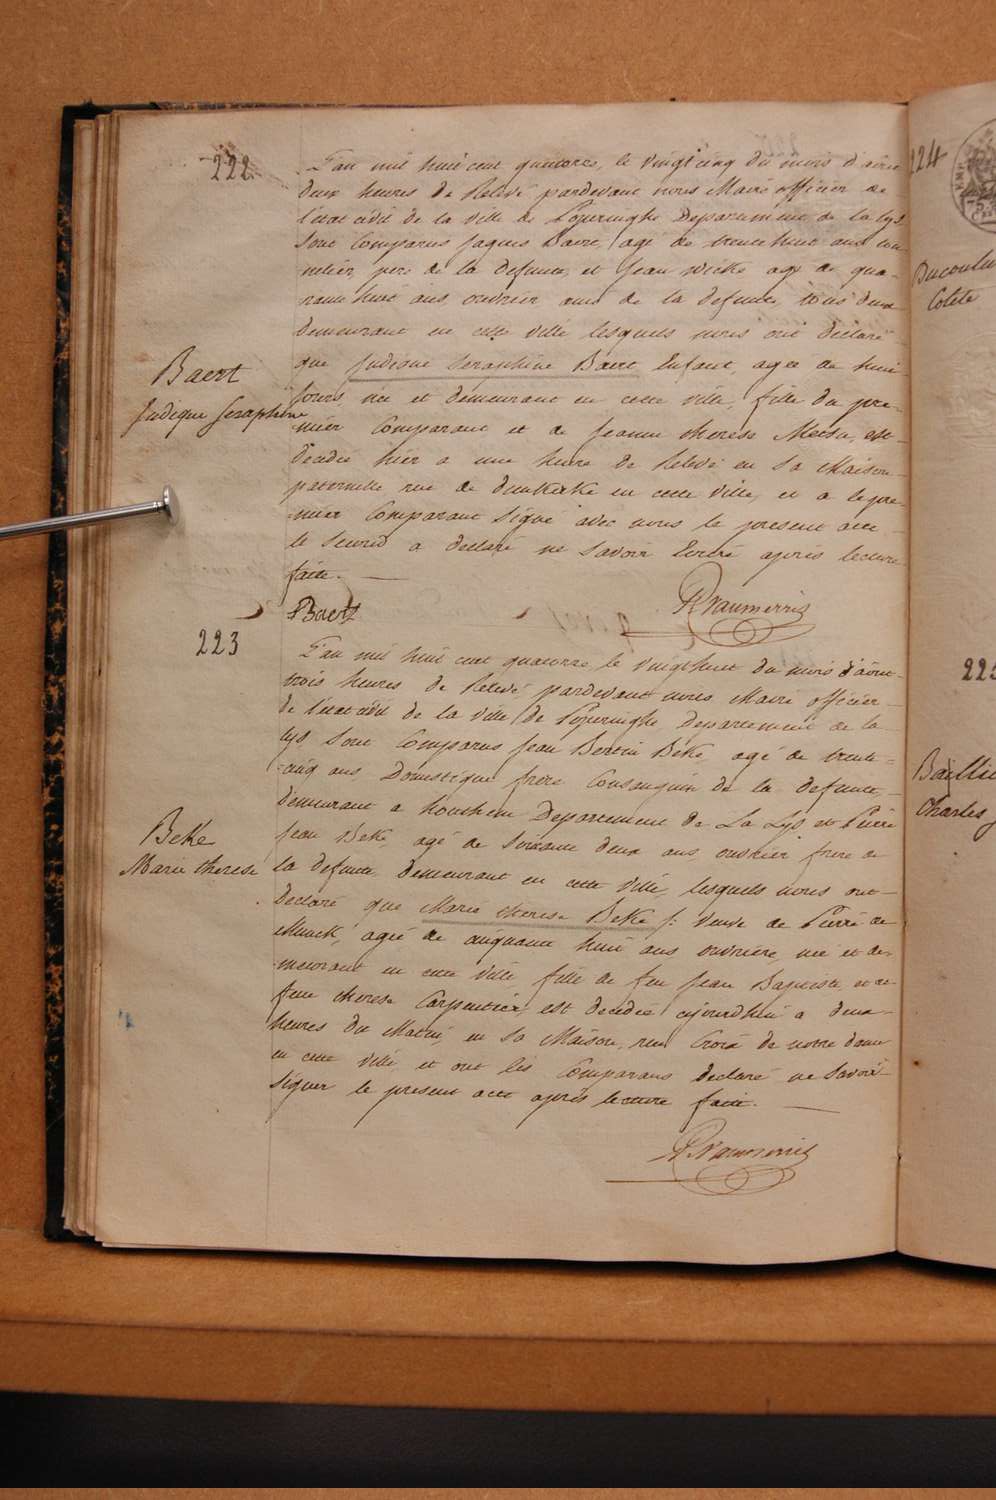 222
L'an mil huit cent quatorze, le vingtcinq du mois d'aôut
deux heures de Relevé pardevant nous Maire officier de
l'état civil de la ville de Poperinghe Departement de la Lys
sont Comparus Jaques Baert, agé de trentehuit ans
père de la defunte, et Jean agé de qua-
rante huit ans ouvrier ami de la defunte, tous deux
demeurant en cette ville lesquels nous ont déclaré
que Judique Seraphine Baert Enfant, agée de huit
jours, née et demeurant en cette ville, fille du pre-
mier Comparant et de Jeanne therese est
decedée hier a une heure de Relevé en sa Maison
paternelle rue de dunkerke en cette ville, et a le pre-
mier Comparant signé avec nous le present acte
le second a declaré ne savoir Ecrire après lecture
faite.
Baert
Judique Seraphine
Baert
R Vanmerris
223
L'an mil huit cent quatorze le vingthuit du mois d'aôut
trois heures de Relevé pardevant nous Maire officier
de l'état civil de la ville de Poperinghe Departement de la
Lys sont Comparus Jean Bertin Beke, agé de trente-
cinq ans Domestique frere Consanguin de la defunte,
demeurant a houthem Departement de La Lys et Pierre
Jean Beke, agé de soixante deux ans ouvrier frere de
la defunte demeurant en cette ville, lesquels nous ont
Declaré que Marie therese Beke /: Veuve de Pierre de
Munck, agée de cinquante huit ans ouvrière, née et de-
meurant en cette ville, fille de feu Jean Baptiste et de
feue therese Carpentier est decedée ajourdhui a deux
heures du Matin en sa Maison, rue Croix de notre dame
en cette ville, et ont les Comparans declaré ne savoir
signer le present acte après lecture faite.
Beke
Marie therese
R Vanmerris
224
Colete
225
Baillie
Charles J